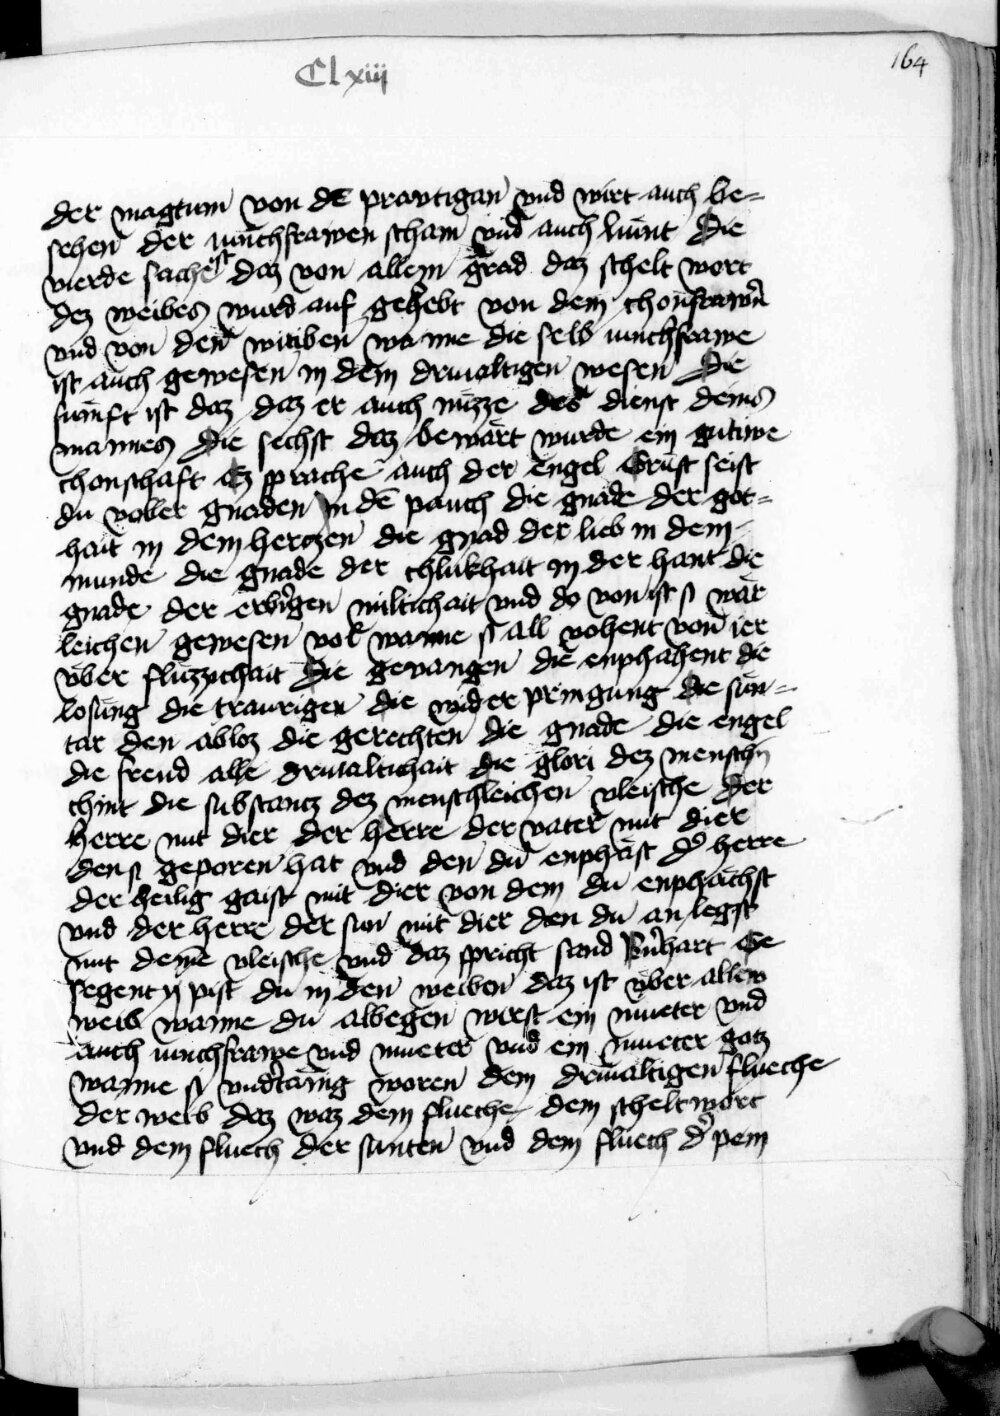 Clxiij
164
der magtum von dē prawtigan vnd wirt auch be=
sehen der iunchfrawen scham vnd auch liunt Die
vierde sache ist daz von allem grad daz schelt wort
dez weibes wurd auf gehebt von dem chonfrawn̄
vnd von den witiben wanne die selb iunchfrawe
ist auch gewesen in dem driualtigen wesen Die
fumft ist daz daz er auch nuzze des dienst deins
mannes Die sechst daz bewart wurde ein gutiwe
chonschaft Ez sprache auch der engel Grust seist
du voller gnaden in dē pauch die gnade der got=
hait in dem hertzen die gnad der lieb in dem
munde die gnade der chlukhait in der hant die
gnade der erbigen miltichait vnd do von ist si war
leichen gewesen vol wanne si all vohent von ier
vber fluzzichait Die gevangen die enphahent die
losung die traurigen die wider pringung die sun=
tar den abloz die gerechten die gnade die engel
die freud alle driualtichait die glori dez menschn̄
chint die substantz dez menschleichen vleische Der
herre mit dier der herre der vater mit dier
den si geporen hat vnd den du enphast d' herre
der heilig gaist mit dier von dem du enphachst
vnd der herre der sun mit dier den du an legst
mit deinē vleische vnd daz spricht sand Bn̄hart Ge
segent pist du in den weiben daz ist vber allew
weib wanne du albegen wirst ein mueter vnd
auch iunchfrawe vnd mueter vnd ein mueter gotz
wanne si vndertanig woren dem driualtigen flueche
der weib daz waz dem flueche dem schelt wort
vnd dem fluech der sunten vnd dem fluech d' pein